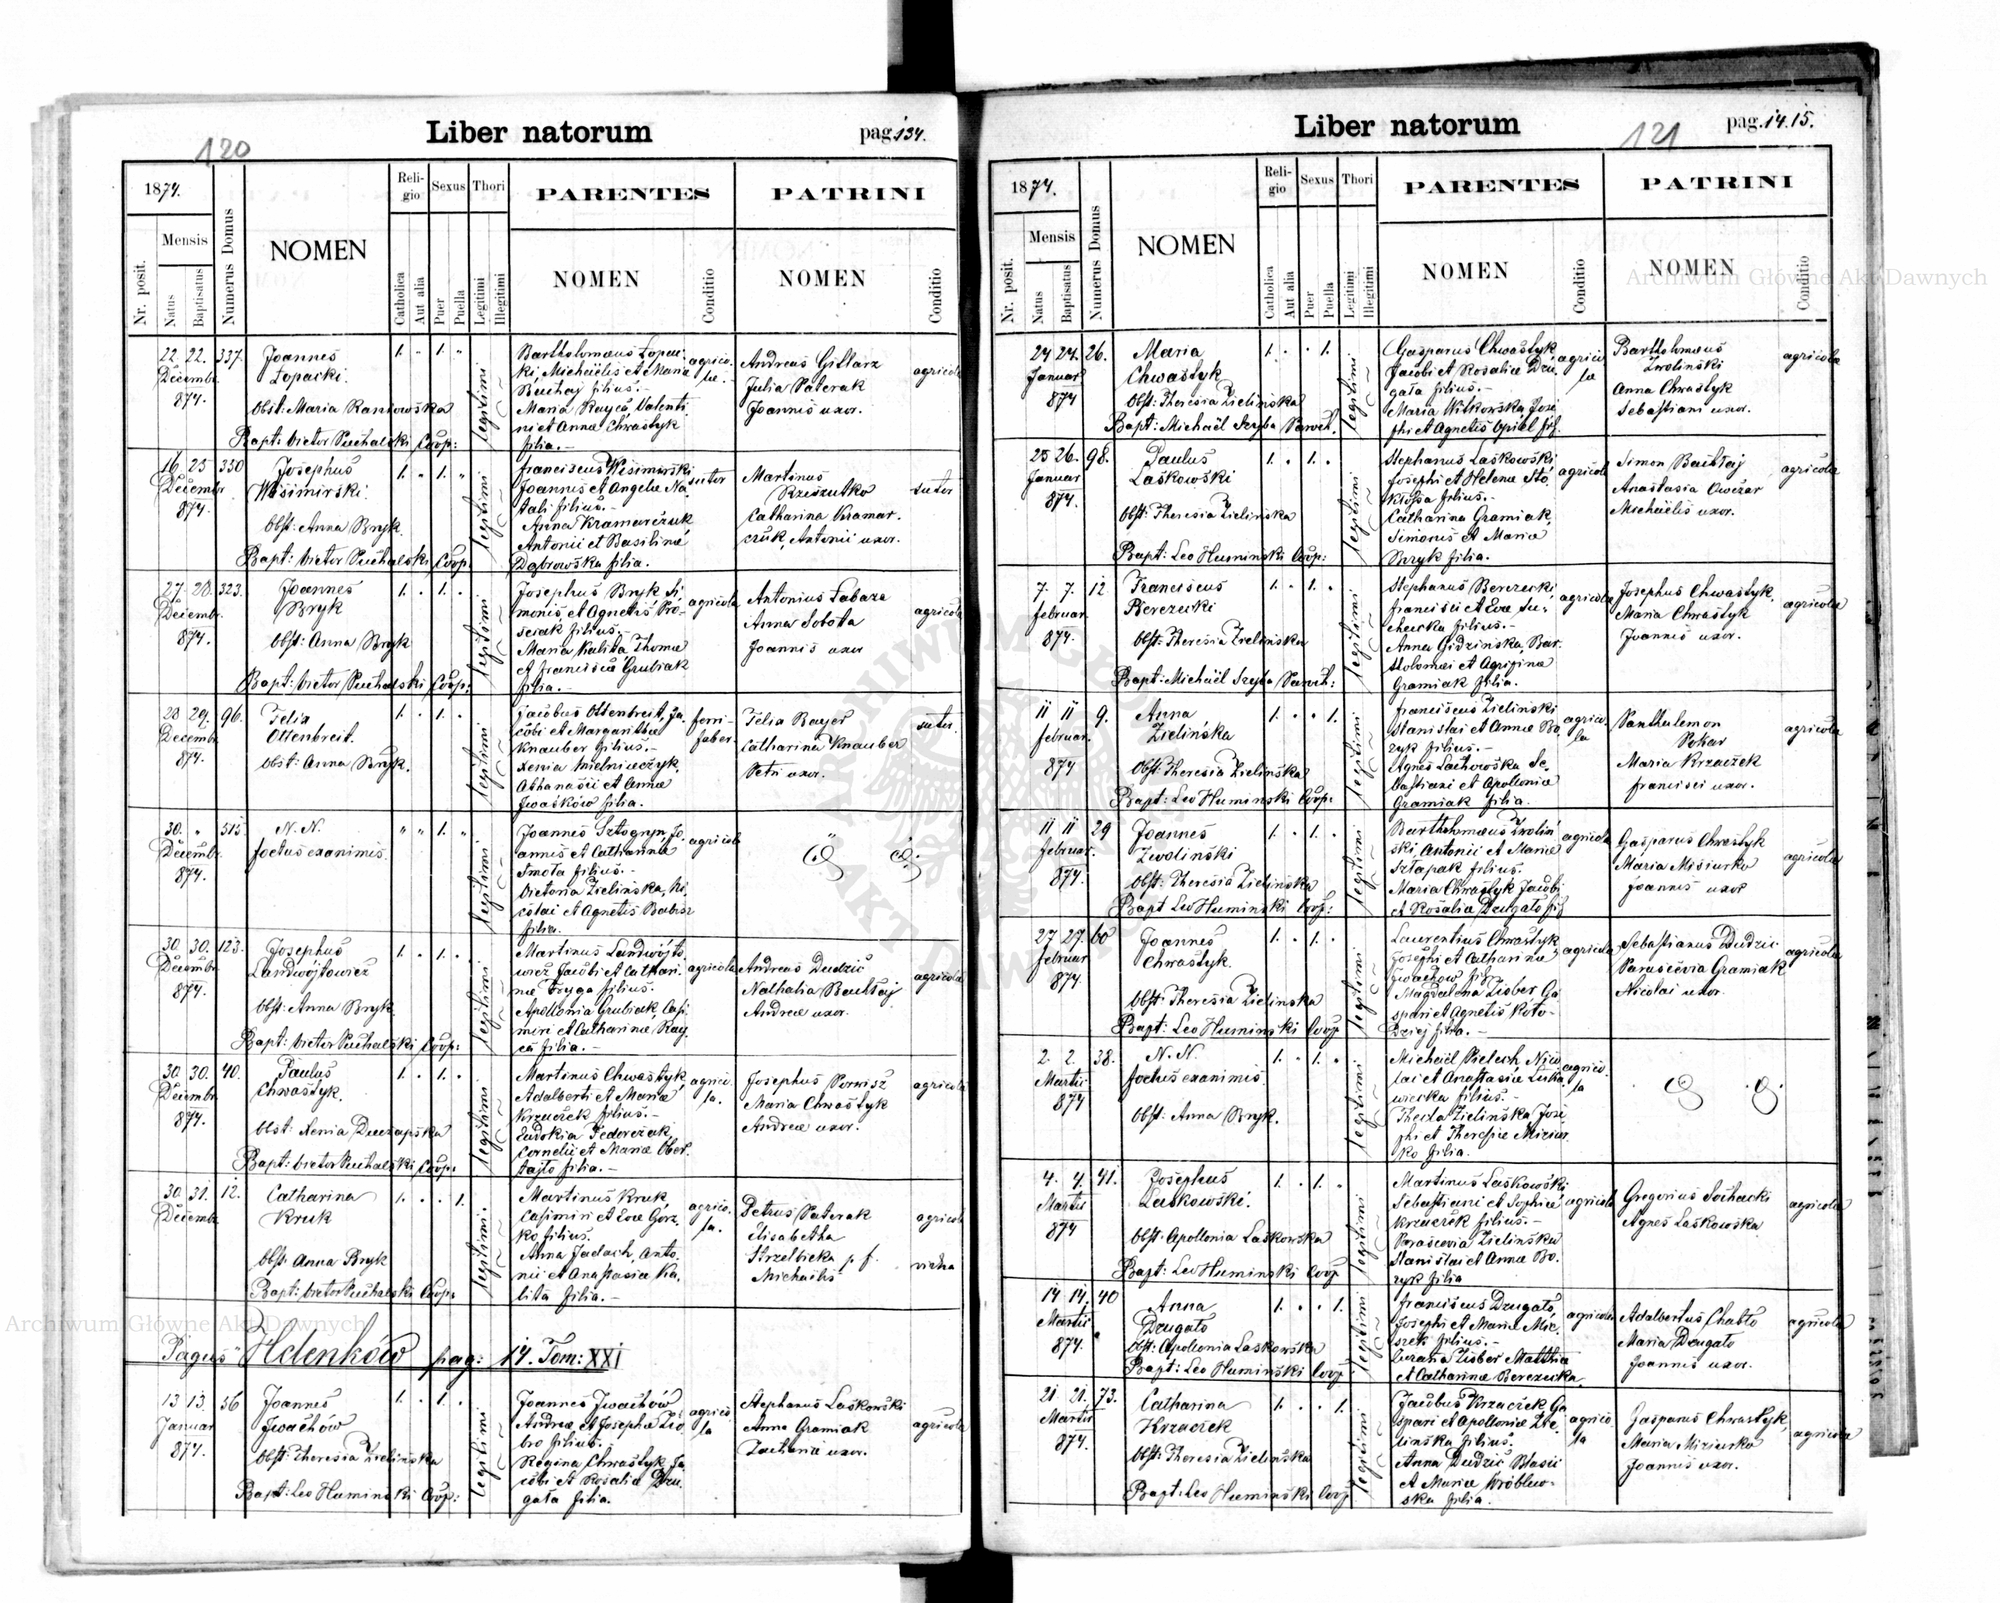 120
Liber natorum
pag. 134.
1874.
Mensis
Nr. posit.
Natus
Baptisatus
Numerus Domus
NOMEN
Religio
Catholica
Aut alia
Sexus
Puer
Puella
Thori
Legitimi
Illegitimi
PARENTES
NOMEN
Conditio
PATRINI
NOMEN
Conditio
22 22. 337.
Decembr.
874.
Joannes
Łopacki.
Obst: Maria
Bapt: Victor Puchalski Coop:
1. " 1. "
legitimi
Bartholomæus Łopac-
ki, Michaëlis et Mariæ
filius.-
Maria Valenti
ni et Annæ Chwastyk
filia.-
agrico-
la.-
Andreas
Julia Paterak
Joannis uxor.
agricola
16. 25 330
Decembr.
874.
Josephus
Wisimirski.
Obst: Anna Bryk.
Bapt: Victor Puchalski Coop.
1. " 1. "
legitimi
Franciscus Wisimirski
Joannis et Angelæ Na
tali filius.-
Anna Kramarczuk
Antonii et Basilinæ
Dąbrowska filia.
sutor
Martinus
Rzeszutko
Catharina Kramar.
czuk, Antonii uxor.
sutor
27. 28. 323.
Decembr.
874.
Joannes
Bryk
Obst: Anna Bryk
Bapt: Victor Puchalski Coop:
1. . 1. .
legitimi
Josephus Bryk Si
monis et Agnetis Pro-
serak filius.-
Maria Kalita Thomæ
et Franciscæ Grubiak
filia.-
agricola
Antonius Łabaza
Anna Sobota
Joannis uxor
agricola
28 29. 96.
Decembr.
874.
Felix
Ottenbreit.
Obst: Anna Bryk.
1. . 1. .
legitimi
Jacobus Ottenbreit, Ja
cobi et Margarithæ
Knauber filius.-
Xenia Mielniaczyk,
Athanasii et Annæ
Iwasków filia.
ferri-
faber-
Felix Bayer
Catharina Knauber
Petri uxor.
sutor.
30. " 315.
Decembr.
874.
N. N.
foetus exanimis.
" " 1. "
legitimi
Joannes Jo
annis et Catharinæ
Smoła filius.-
Victoria Zielinska, Ni
colai et Agnetis
filia.
agricola
30. 30. 123.
Decembr.
874.
Josephus
Landwójtowicz
Obst: Anna Bryk
Bapt: Victor Puchalski Coop:
1. . 1. .
legitimi
Martinus Landwójto
wicz Jacobi et Cathari-
næ Fryga filius.
Apollonia Grubiak, Casi
miri et Catharinæ Ray
ca filia.-
agricola
Andreas Dudzic
Nathalia
Andreæ uxor.
agricola
30. 30. 40.
Decembr.
874.
Paulus
Chwastyk.
Obst: Xenia
Bapt: Victor Puchalski Coop:
1. . 1. .
legitimi
Martinus Chwastyk,
Adalberti et Mariæ
Krzaczek filius.-
Eudokia Fedorczak,
Cornelii et Mariæ
filia.-
agrico-
la.
Josephus
Maria Chwastyk
Andreæ uxor.
agricola
30. 31. 12.
Decembr.
Catharina
Kruk
Obst: Anna Bryk
Bapt: Victor Puchalski Coop:
1. . . 1.
legitimi
Martinus Kruk
Casimiri et Evæ Górz.
ko filius.
Anna Jadach, Anto
nii et Anastasiæ Ka
lita filia.-
agrico-
la.
Petrus Paterak
Elisabetha
Strzelbicka p. f.
Michaëlis
agricola
Pagus "Hdenków pag: 14. Tom: XXI
13 13. 56
Januar
874.
Joannes
Iwachów
Obst: Theresia Zielinska
Bapt: Leo Huminski Coop:
1. . 1. .
legitimi
Joannes Iwachów
Andreæ et Josephæ Zio
bro filius.
Regina Chwastyk Ja
cobi et Rosaliæ Dzu
gata filia.
agrico
la
Stephanus Laskowski
Anna Gramiak
Zachariæ uxor.
agricola
Liber natorum
121
pag. 14.15.
1874.
Mensis
Nr. posit.
Natus
Baptisatus
Numerus Domus
NOMEN
Religio
Catholica
Aut alia
Sexus
Puer
Puella
Thori
Legitimi
Illegitimi
PARENTES
NOMEN
Conditio
PATRINI
NOMEN
Conditio
24 24. 26.
Januar
874
Maria
Chwastyk
Obst: Theresia Zielinska
Bapt: Michaël Paroch:
1. . . 1.
legitimi
Gasparus Chwastyk
Jacobi et Rosaliæ Dzu
gata filius.-
Maria Witkowska Jose
phi et Agnetis Opiel fil.
agrico
la
Bartholomæus
Zwolinski
Anna Chwastyk
Sebastiani uxor.
agricola
25 26. 98.
Januar
874.
Paulus
Laskowski
Obst: Theresia Zielinska
Bapt: Leo Huminski Coop:
1. . 1. .
legitimi
Stephanus Laskowski
Josephi et Helenæ Sto
kłosa filius.-
Catharina Gramiak,
Simonis et Mariæ
Bryk filia.
agricola
Simon
Anastasia Owczar
Michaëlis uxor.
agricola
7. 7. 12
Februar
874.
Franciscus
Berezecki
Obst: Theresia Zielinska
Bapt: Michaël Paroch:
1. . 1. .
legitimi
Stephanus Berezecki
Francisci et Evæ Su-
checka filius.-
Anna Gidzinska, Bar.
tholomæi et Agripinæ
Gramiak filia.
agricola
Josephus Chwastyk.
Maria Chwastyk
Joannis uxor.
agricola
11 11 9.
Februar.
874
Anna
Zielińska
Obst: Theresia Zielinska
Bapt: Leo Huminski Coop:
1. . . 1.
legitimi
Franciscus Zielinski
Stanislai et Annæ Bo.
ryk filius.-
Agnes Lachowska Se-
bastiani et Apolloniæ
Gramiak filia.
agrico-
la
Panthalemon
Pokar
Maria Krzaczek
Francisci uxor.
agricola
11 11 29
Februar.
874.
Joannes
Zwolinski
Obst: Theresia Zielinska
Bapt Leo Huminski Coop:
1. . 1. .
legitimi
Bartholomæus Zwolin
ski, Antonii et Mariæ
Sztapak filius.
Maria Chwastyk Jacobi
et Rosaliæ Dzugato fil
agricola
Gasparus Chwastyk
Maria Misiurka
Joannis uxor
agricola
27 27. 60
Februar
874.
Joannes
Chwastyk.
Obst: Theresia Zielinska
Bapt: Leo Huminski Coop
1. . 1. .
legitimi
Laurentius Chwastyk,
Josephi et Catharinæ
Iwachów fil.
Magdalena Ziober Ga
spari et Agnetis Koło-
dziej filia.-
agricola
Sebastianus Dudzic
Parascevia Gramiak
Nicolai uxor.
agricola
2. 2. 38.
Martii
874
N. N.
foetus exanimis.
Obst: Anna Bryk.
1. . 1. .
legitimi
Michaël Pielech, Nico
lai et Anastasiæ
filius.-
Thecla Zielinska Jose
phi et Theresiæ Miziur
ko filia.
agrico-
la
4. 4. 41.
Martii
874
Josephus
Laskowski.
Obst: Apollonia Laskowska
Bapt: Leo Huminski Coop
1. . 1. .
legitimi
Martinus Laskowski
Sebastiani et Sophiæ
Krzaczek filius.-
Parascevia Zielinska
Stanislai et Annæ Bo-
ryk filia
agricola
Gregorius Sochacki
Agnes Laskowska
agricola
14 14. 40
Martii
874.
Anna
Dzugato
Obst: Apollonia Laskowska
Bapt: Leo Huminski Coop
1. . . 1.
legitimi
Franciscus Dzugato,
Josephi et Mariæ Mie-
szek filius.-
Ziober Matthiæ
et Catharinæ Berezecka.
agricola
Adalbertus Chabło
Maria Dzugato
Joannis uxor.
agricola
21 21. 73.
Martii
874.
Catharina
Krzaczek
Obst: Theresia Zielinska
Bapt: Leo Huminski Coop
1. . . 1.
legitimi
Jacobus Krzaczek Ga
spari et Apolloniæ Zie-
linska filius.
Anna Dudzic Blasii
et Mariæ Wróblew-
ska filia.
agrico
la
Gasparus Chwastyk,
Maria Miziurka
Joannis uxor.
agricola
Archiwum Główne Akt Dawnych
Archiwum Główne Akt Dawnych